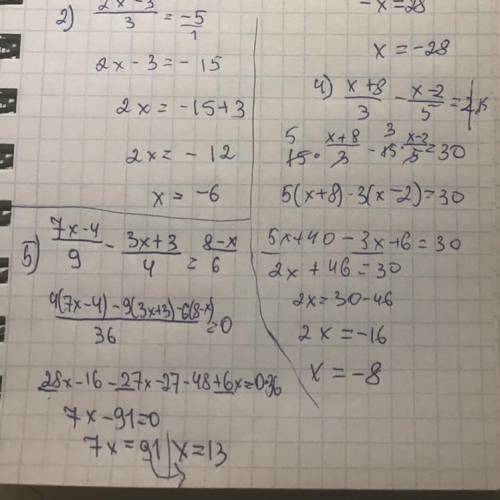 2) (2x-3)/3 = -5/1
2x-3=-15
2x=-15+3
2x=-12
x=-6
5) (7x-4)/9 - (3x+3)/4 = (8-x)/6
(4(7x-4)-9(3x+3)-6(8-x))/36=0
28x-16-27x-27-48+6x=0·36
7x-91=0
7x=91 | x=13
-x=28
x=-28
4) (x+8)/3 - (x-2)/5 = 2
5 15·(x+8)/3 - 3 15·(x-2)/5=30
5(x+8)-3(x-2)=30
5x+40-3x+6=30
2x+46=30
2x=30-46
2x=-16
x=-8